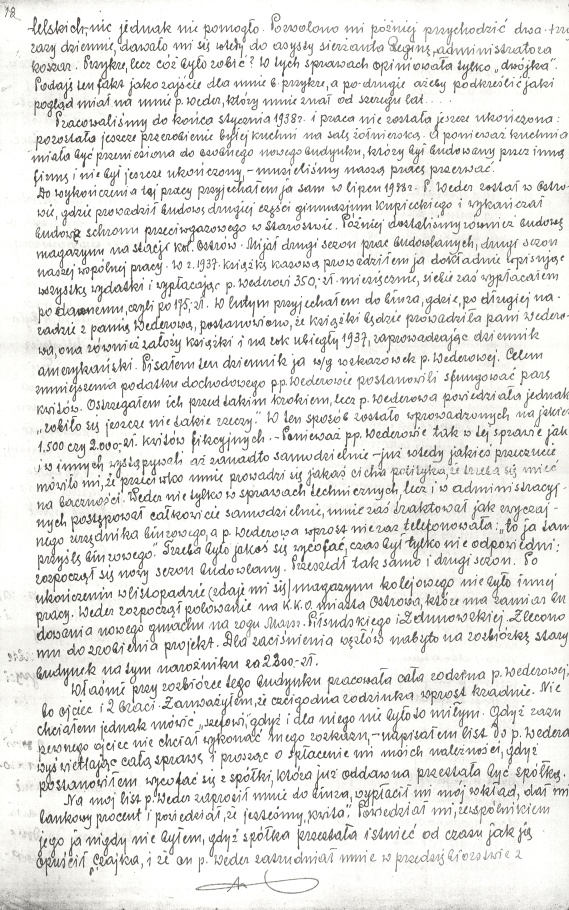 78
telskich, nic jednak nie pomogło. Pozwolono mi później przychodzić dwa-trzy
razy dziennie, dawało mi się wtedy do asysty sierżanta Reginę, administratora
koszar. Przykre, lecz cóż było robić? W tych sprawach opiniowała tylko „dwójka".
Podaję ten fakt jako zajście dla mnie b. przykre, a po-drugie ażeby podkreślić jaki
pogląd miał na mnie p. Weder, który mnie znał od szeregu lat....
Pracowaliśmy do końca stycznia 1938r. i praca nie została jeszcze ukończona:
pozostała jeszcze przerobienie byłej kuchni na salę żołnierską. A ponieważ kuchnia
miała być przeniesiona do osobnego nowego budynku, który był budowany przez inną
firmę i nie był jeszcze ukończony, – musieliśmy naszą pracę przerwać.
Do wykończenia tej pracy przyjechałem ja sam w lipcu 1938r. P. Weder został w Ostro-
wie, gdzie prowadził budowę drugiej części gimnazjum Kupieckiego i wykańczał
budowę schronu przeciwgazowego w Starostwie. Później dostaliśmy również budowę
magazynu na stacji kol. Ostrów. Mijał drugi sezon prac budowlanych, drugi sezon
naszej wspólnej pracy. W r. 1937. książkę kasową prowadziłem ja dokładnie wpisując
wszystkie wydatki i wypłacając p. Wederowi 350,-zł. miesięcznie, siebie zaś wypłacałem
po dawnemu, czyli po 175,-zł. W lutym przyjechałem do biura, gdzie, po drugiej na-
radzie z panią Wederową, postanowiono, że książki będzie prowadziła pani Wedero-
wa, ona również założy książki i na rok ubiegły 1937, zaprowadzając dziennik
amerykański. Pisałem ten dziennik ja w/g wskazówek p. Wederowej. Celem
zmniejszenia podatku dochodowego p.p. Wederowie postanowili sfingować parę
kwitów. Ostrzegałem ich przed takim krokiem, lecz p. Wederowa powiedziała jednak
„robiło się jeszcze nie takie rzeczy". W ten sposób zostało wprowadzonych na jakieś
1.500 czy 2.000,-zł. kwitów fikcyjnych. – Ponieważ pp. Wederowie tak w tej sprawie jak
i w innych występywali aż zanadto samodzielnie – już wtedy jakieś przeczucie
mówiło mi, że przeciwko mnie prowadzi się jakaś cicha polityka, że trzeba się mieć
na baczności. Weder nie tylko w sprawach technicznych, lecz i w administracyj-
nych postępował całkowicie samodzielnie, mnie zaś traktował jak zwyczaj-
nego urzędnika biurowego, a p. Wederowa wprost nieraz telefonowała: „to ja tam
przyślę biurowego". Trzeba było jakoś się wycofać, czas był tylko nie odpowiedni:
rozpoczął się nowy sezon budowlany. Przeszedł tak samo i drugi sezon. Po
ukończeniu w listopadzie (zdaje mi się) magazynu kolejowego nie było innej
pracy. Weder rozpoczął polowanie na K.K.O. miasta Ostrowa, które ma zamiar bu-
dowania nowego gmachu na rogu Marsz. Piłsudskiego i Zdunowskiej. Zlecono
mu do zrobienia projekt. Dla zacieśnienia węzłów nabyto na rozbiórkę stary
budynek na tym narożniku za 2200,-zł.
Właśnie przy rozbiórce tego budynku pracowała cała rodzina p. Wederowej,
bo ojciec i 2 braci. Zauważyłem, że czcigodna rodzinka wprost kradnie. Nie
chciałem jednak mówić „szefowi", gdyż i dla niego nie było to miłym. Gdyż razu
pewnego ojciec nie chciał wykonać mego rozkazu, – napisałem list do p. Wedera
wyświetlając całą sprawę i prosząc o spłacenie mi moich należności, gdyż
postanowiłem wycofać się z spółki, która już oddawna przestała być spółką.
Na mój list p. Weder zaprosił mnie do biura, wypłacił mi mój wkład, dał mi
bankowy procent i powiedział, że jesteśmy „kwita". Powiedział mi, że wspólnikiem
jego ja nigdy nie byłem, gdyż spółka przestała istnieć od czasu jak ją
opuścił Czajka, i że on p. Weder zatrudniał mnie w przedsiębiorstwie z